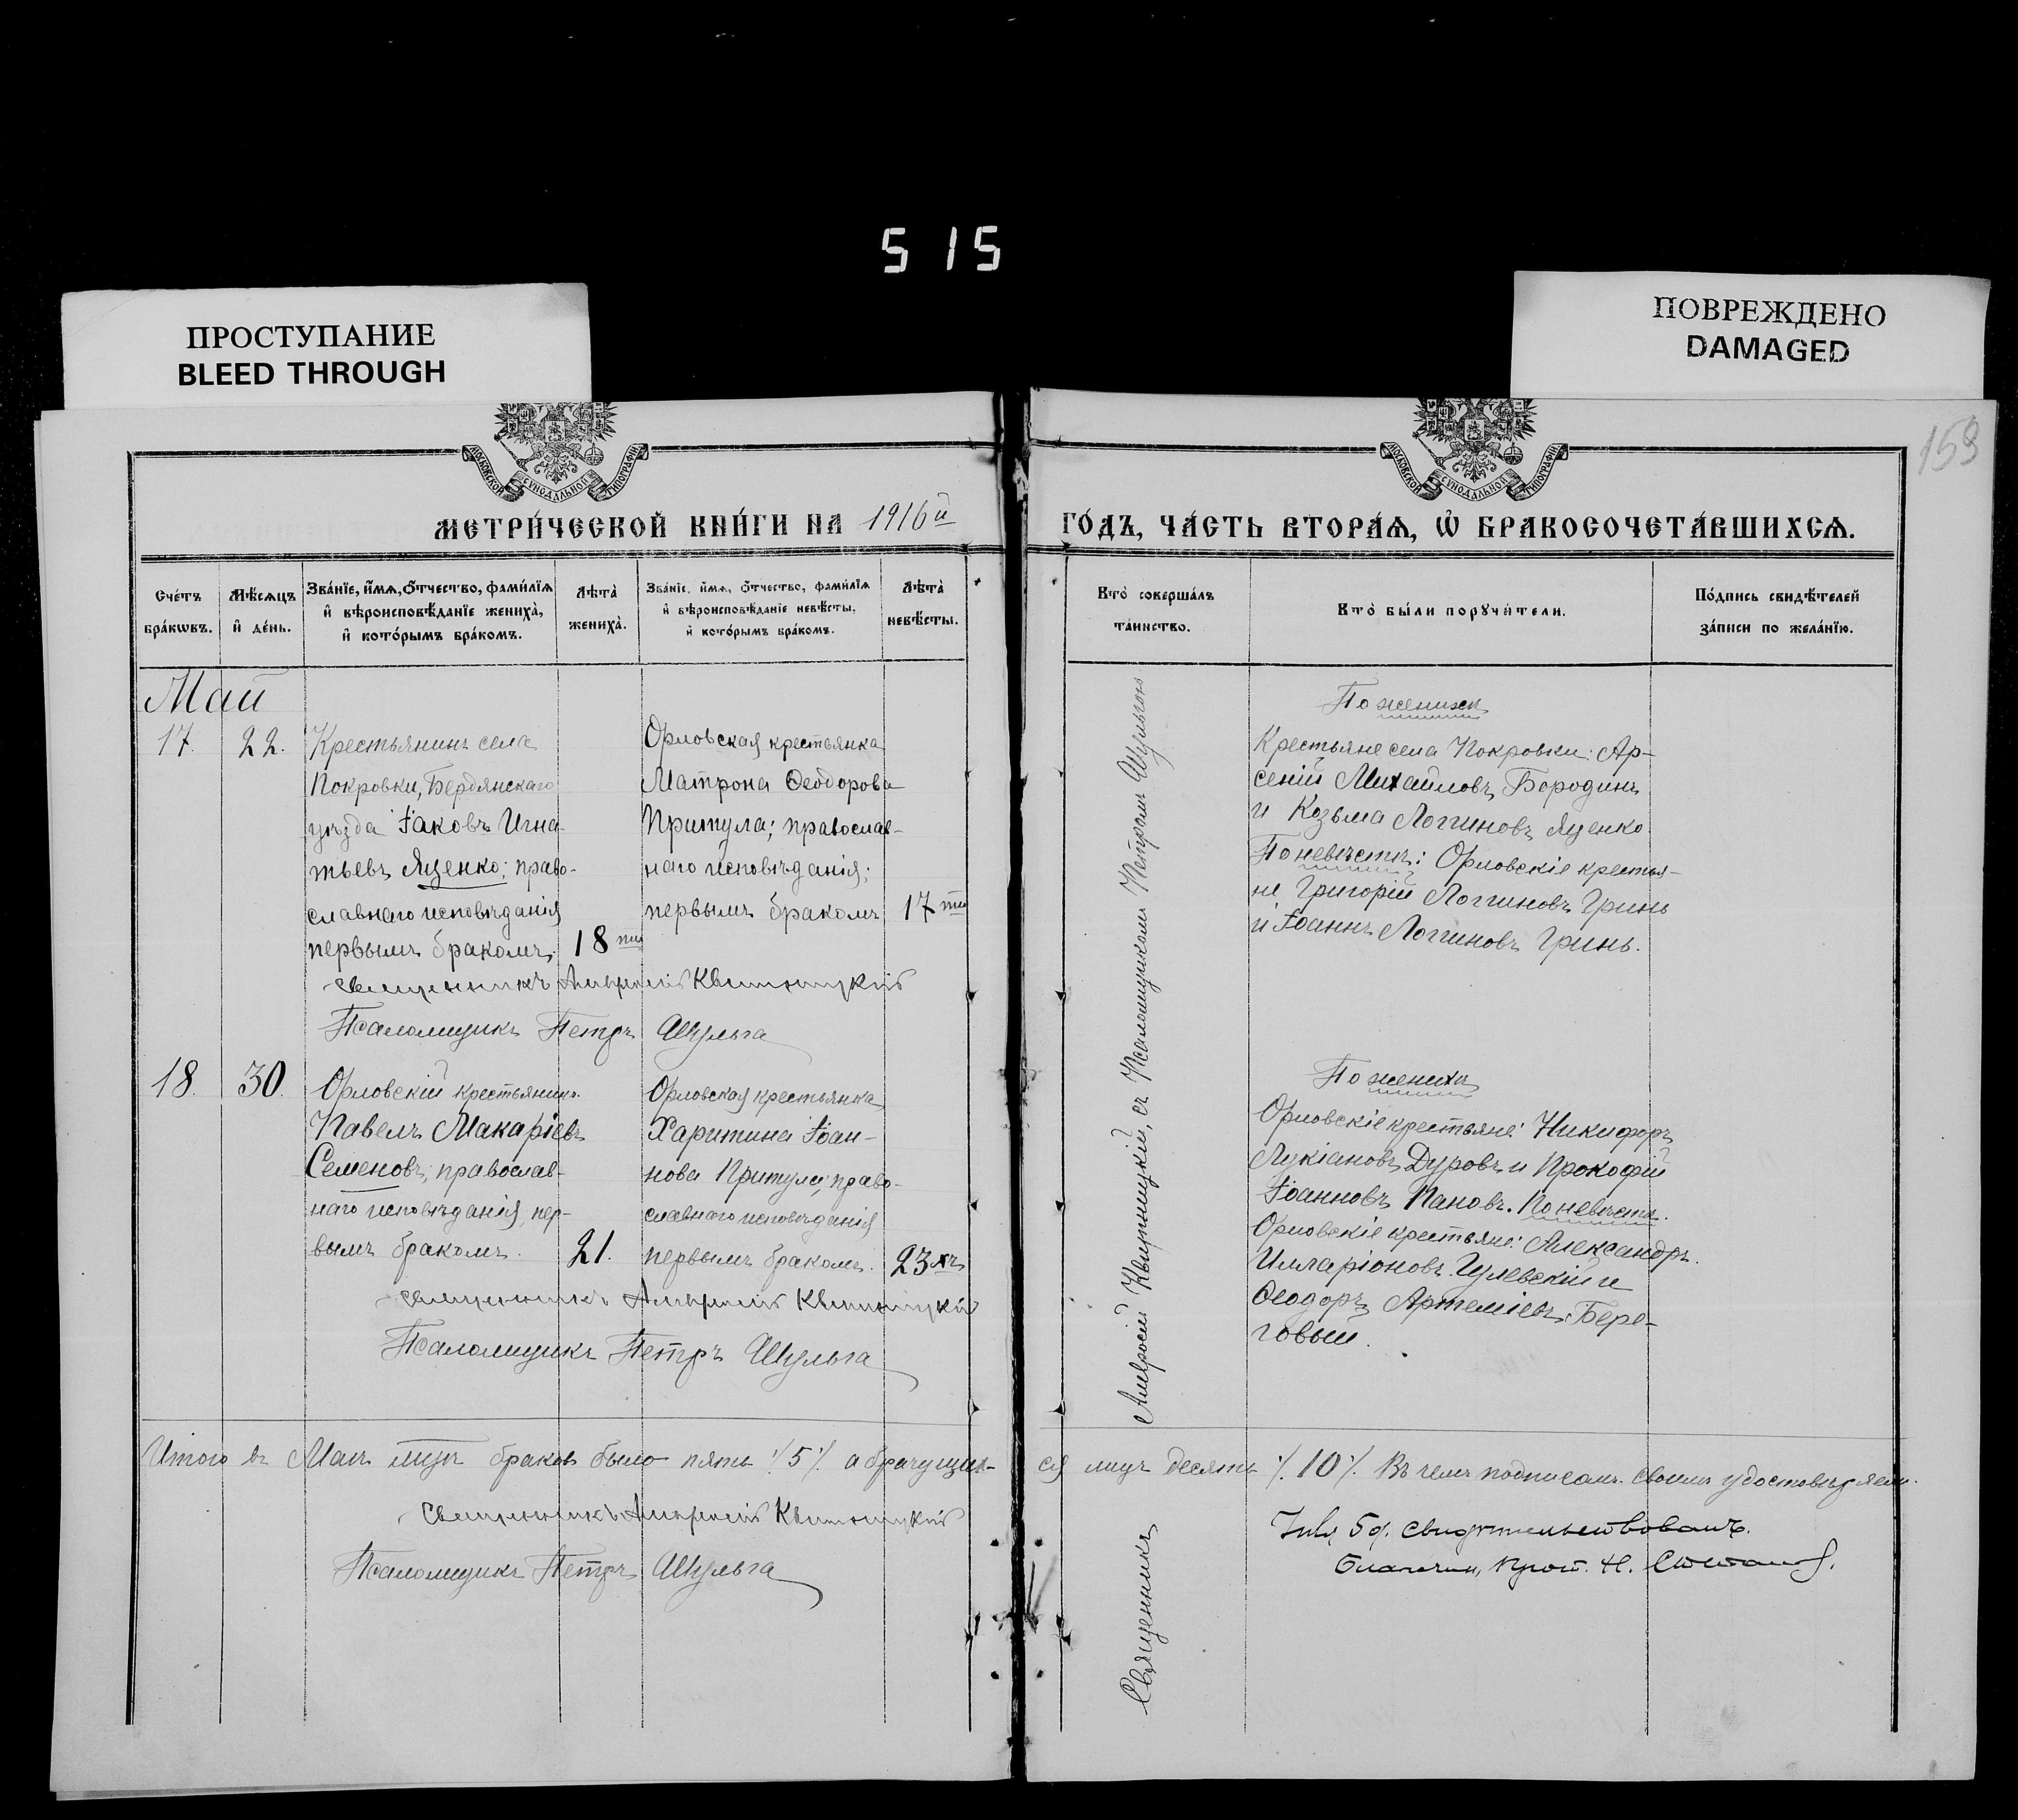 515
ПРОСТУПАНИЕ
BLEED THROUGH
ПОВРЕЖДЕНО
DAMAGED
159
МОСКОВСКОЙ СѴНОДАЛЬНОЙ ТИПОГРАФІИ
МОСКОВСКОЙ СѴНОДАЛЬНОЙ ТИПОГРАФІИ
МЕТРИ́ЧЕСКОЙ КНИ́ГИ НА 1916й
ГО́ДЪ, ЧА́СТЬ ВТОРА́Я, Ѡ҆ БРАКОСОЧЕТА́ВШИХСѦ.
Сче́тъ бра́кѡвъ.
Мѣ́сѧцъ и҆ де́нь.
Зва́нїе, и҆́мѧ, ѻ҆́тчество, фами́лїѧ
и҆ вѣроисповѣ́данїе жениха̀,
и҆ кото́рымъ бра́комъ.
Лѣ́та̀ жениха̀.
Зва́нїе, и҆́мѧ, ѻ҆́тчество, фами́лїѧ
и҆ вѣроисповѣ́данїе невѣ́сты,
и҆ кото́рымъ бра́комъ.
Лѣ́та̀ невѣ́сты.
Кто̀ соверша́лъ та́инство.
Кто̀ бы́ли порꙋчи́тели.
По́дпись свидѣ́телей
за́писи по жела́нїю.
Май
17.
22.
Крестьянинъ села
Покровки, Бердянскаго
уѣзда Іаковъ Игна-
тьевъ Яценко; право-
славнаго исповѣданія
первымъ бракомъ.
18ти
Орловская крестьянка
Матрона Ѳеодорова
Притула; православ-
наго исповѣданія;
первымъ бракомъ
17ти
Священникъ Амвросій Квитницкій
Псаломщикъ Петръ Шульга
По жениху
Крестьяне села Покровки: Ар-
сеній Михаиловъ Бородинъ
и Козьма Логгиновъ Яценко
По невѣстѣ: Орловскіе крестья-
не Григорій Логгиновъ Гринь
и Іоаннъ Логгиновъ Гринь.
18.
30.
Орловскій крестьянинъ
Павелъ Макаріевъ
Семеновъ; православ-
наго исповѣданія, пер-
вымъ бракомъ.
21.
Орловская крестьянка
Харитина Іоан-
нова Притула; право-
славнаго исповѣданія
первымъ бракомъ.
23хъ
Священникъ Амвросій Квитницкій
Псаломщикъ Петръ Шульга
По жениху
Орловскіе крестьяне: Никифоръ
Лукіановъ Дуровъ и Прокофій
Іоанновъ Пановъ. По невѣстѣ.
Орловскіе крестьяне: Александръ
Илларіоновъ Гулевскій и
Ѳеодоръ Артеміевъ Бере-
говый.
Священникъ Амвросій Квитницкій, съ Псаломщикомъ Петромъ Шульгою
Итого въ Маѣ мцѣ браковъ было пять ./.5./. а брачущих-
ся лицъ десять ./.10./. Въ чемъ подписомъ своимъ удостовѣряемъ.
Священникъ Амвросій Квитницкій
Псаломщикъ Петръ Шульга
5 д. свидѣтельствовалъ.
Благочин. Прот. Н.